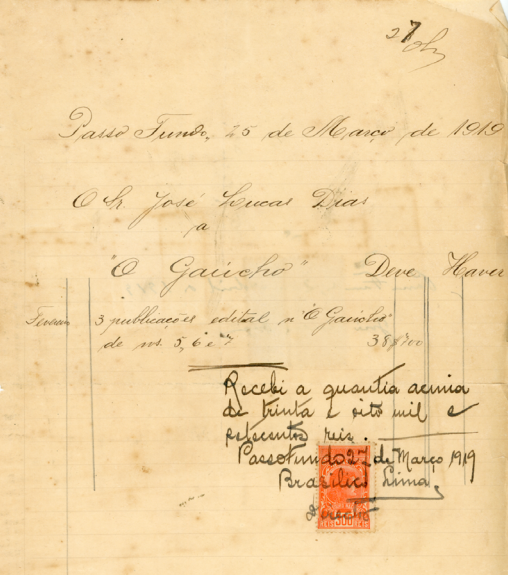 27
Passo Fundo, 25 de Março de 1919
O Sr José Lucas Dias
a
"O Gaúcho" Deve Haver
3 publicações edital n "O Gaúcho"
de ns. 5, 6 e 7 38$700
Recebi a quantia acima
de trinta e oito mil e
setecentos reis.
Passo Fundo 27 de Março 1919
Brasilico Lima
300